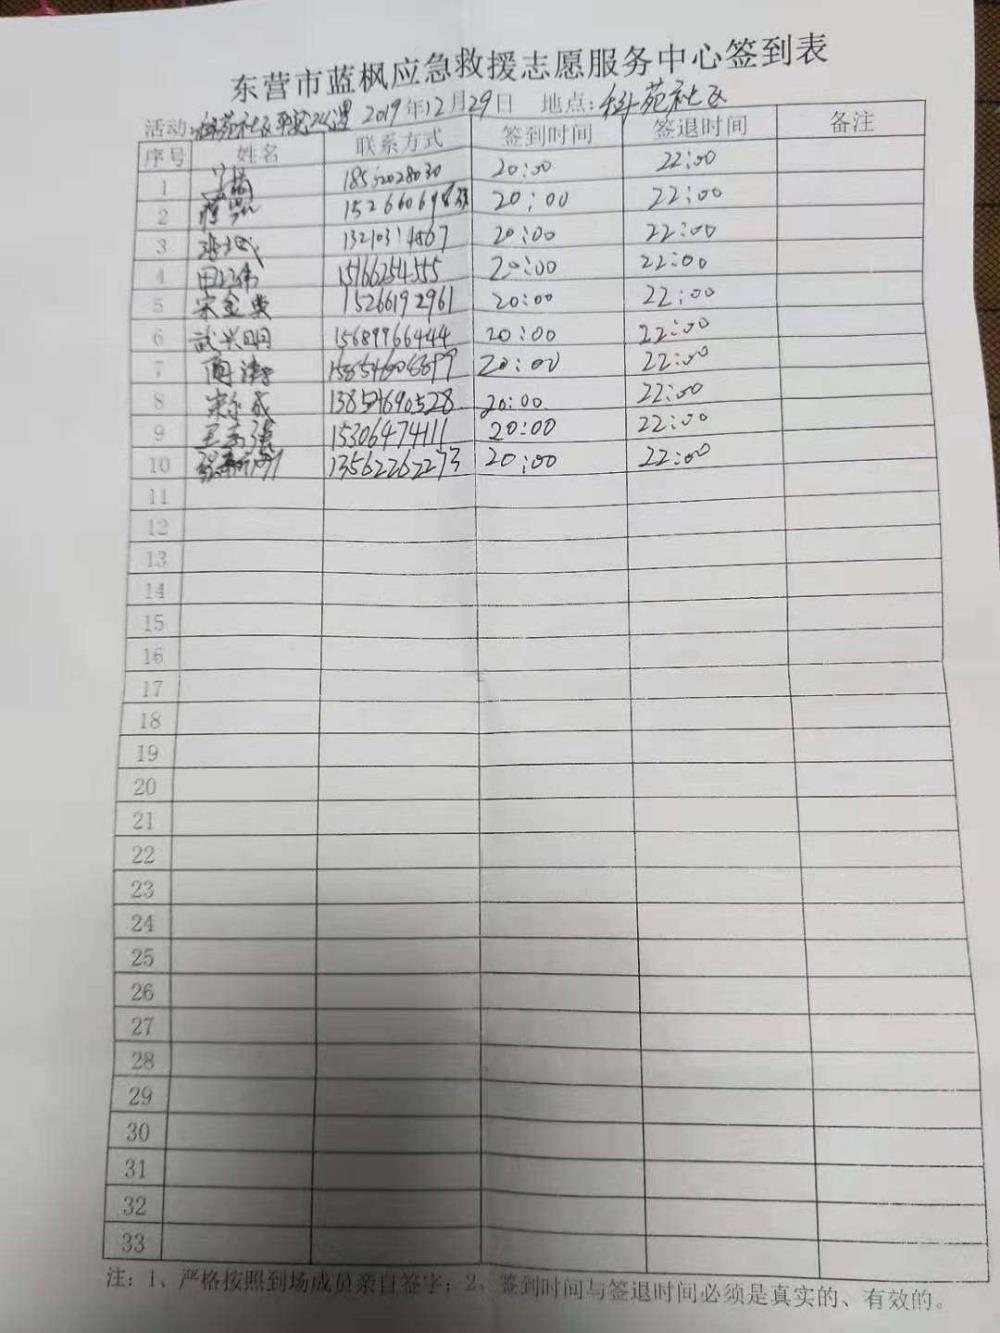 东营市蓝枫应急救援志愿服务中心签到表
活动:科苑社区平安 2019年12月29日 地点:科苑社区
序号 姓名 联系方式 签到时间 签退时间 备注
1 20:00 22:00
2 20:00 22:00
3 20:00 22:00
4 15166254555 20:00 22:00
5 宋金典 15266192961 20:00 22:00
6 武兴明 15689966444 20:00 22:00
7 20:00 22:00
8 13854690528 20:00 22:00
9 王志强 15306474111 20:00 22:00
10 13562262273 20:00 22:00
11
12
13
14
15
16
17
18
19
20
21
22
23
24
25
26
27
28
29
30
31
32
33
注:1、严格按照到场成员亲自签字;2、签到时间与签退时间必须是真实的、有效的。